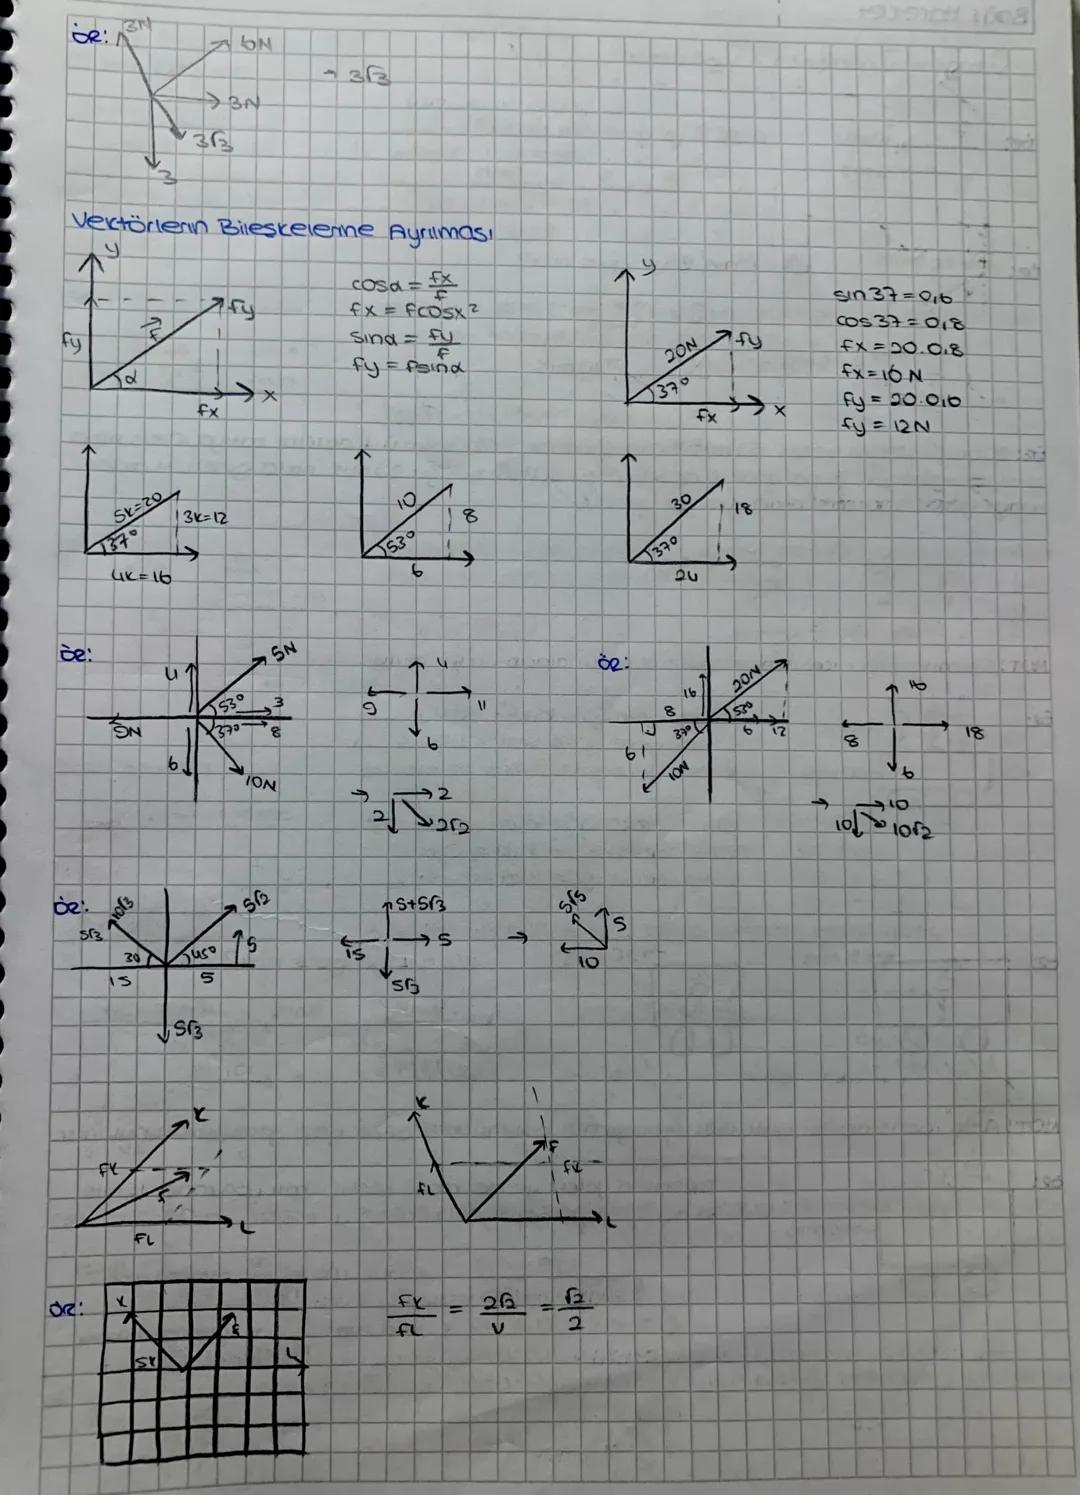 ÖR:
3N
6N
3N
3√3
3
- 3√3
Vektörlerin Bileşkelerine Ayrılması
y
fy
fy
F
α
fx
x
cosα = fx/f
fx = fcosx²
sinα = fy/f
fy = fsinα
y
20N
fy
37°
fx
x
sin37 = 0,6
cos37 = 0,8
fx = 20.0,8
fx = 16 N
fy = 20.0,6
fy = 12N
5k=20
3k=12
37°
4k=16
10
8
53°
6
30
18
37°
24
ÖR:
4
5N
53°
3
9N
37°
8
6
10N
4
9
11
6
→
2
2
2√2
ÖR:
16
20N
8
53°
37°
6
12
6
10N
16
8
18
6
→
10
10
10√2
ÖR:
10√3
5√3
5√2
30
45°
5
15
5
5√3
5+5√3
15
5
5√3
→
5√5
5
10
K
FK
F
FL
L
K
F
FL
FK
L
ÖR:
K
F
5K
L
FK/FL = 2√2/4 = √2/2